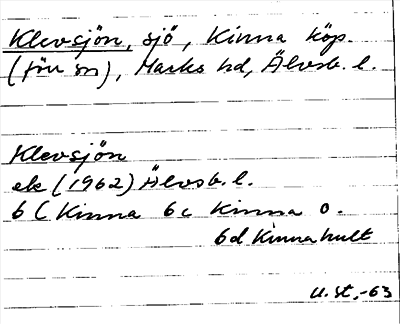 Klevsjön, sjö, Kinna köp.
(förr sn), Marks hd, Älvsb. l.
Klevsjön
ek (1962) Älvsb. l.
6 C Kinna 6 c Kinna o.
6d Kinnahult
U. St. -63